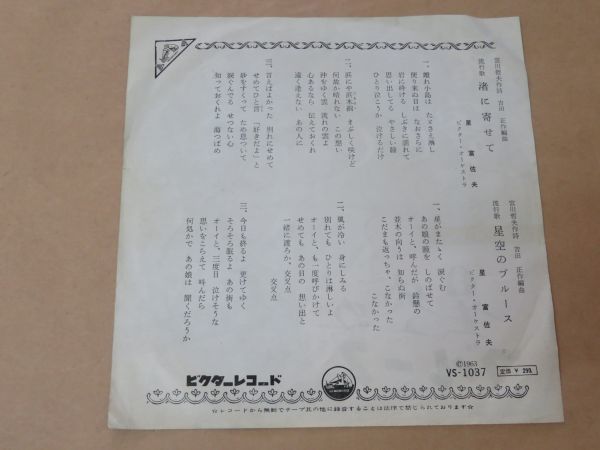 宮川哲夫作詩 吉田 正作編曲
流行歌 渚に寄せて
星 富佐夫
ビクター・オーケストラ
一、離れ小島は たださえ淋し
便り来ぬ日は なおさらに
岩に砕ける しぶきに濡れて
思い出してる やさしい瞳
ひとり泣こうか 泣けるだけ
二、浜にや浜木綿 まぶしく咲けど
何故か晴れない この想い
沖をゆく雲 流れの雲よ
心あるなら 伝えておくれ
遠く逢えない あの人に
三、言えばよかった 別れにせめて
せめてひと言 「好きだよ」と
砂をすくって ため息ついて
涙ぐんでる せつない心
知っておくれよ 海つばめ
宮川哲夫作詩 吉田 正作編曲
流行歌 星空のブルース
星 富佐夫
ビクター・オーケストラ
一、星がまたゝく 涙ぐむ
あの娘の瞳を しのばせて
オーイと、呼んだが 鈴懸の
並木の向うは 知らぬ街
こだまも返っちゃ、こなかった
こなかった
二、風が冷い 身にしみる
別れても ひとりは淋しいよ
オーイと、も一度呼びかけて
せめても あの日の 想い出と
一緒に渡ろか、交叉点
交叉点
三、今日も終るよ 更けてゆく
そろそろ眠るよ あの街も
オーイと、三度目 泣けそうな
思いをこらえて 呼んだら
何処かで あの娘は 聞くだろうか
ビクターレコード
Ⓟ1963
VS-1037
定価 ¥ 290.
☆レコードから無断でテープ其の他に録音することは法律で禁じられております☆